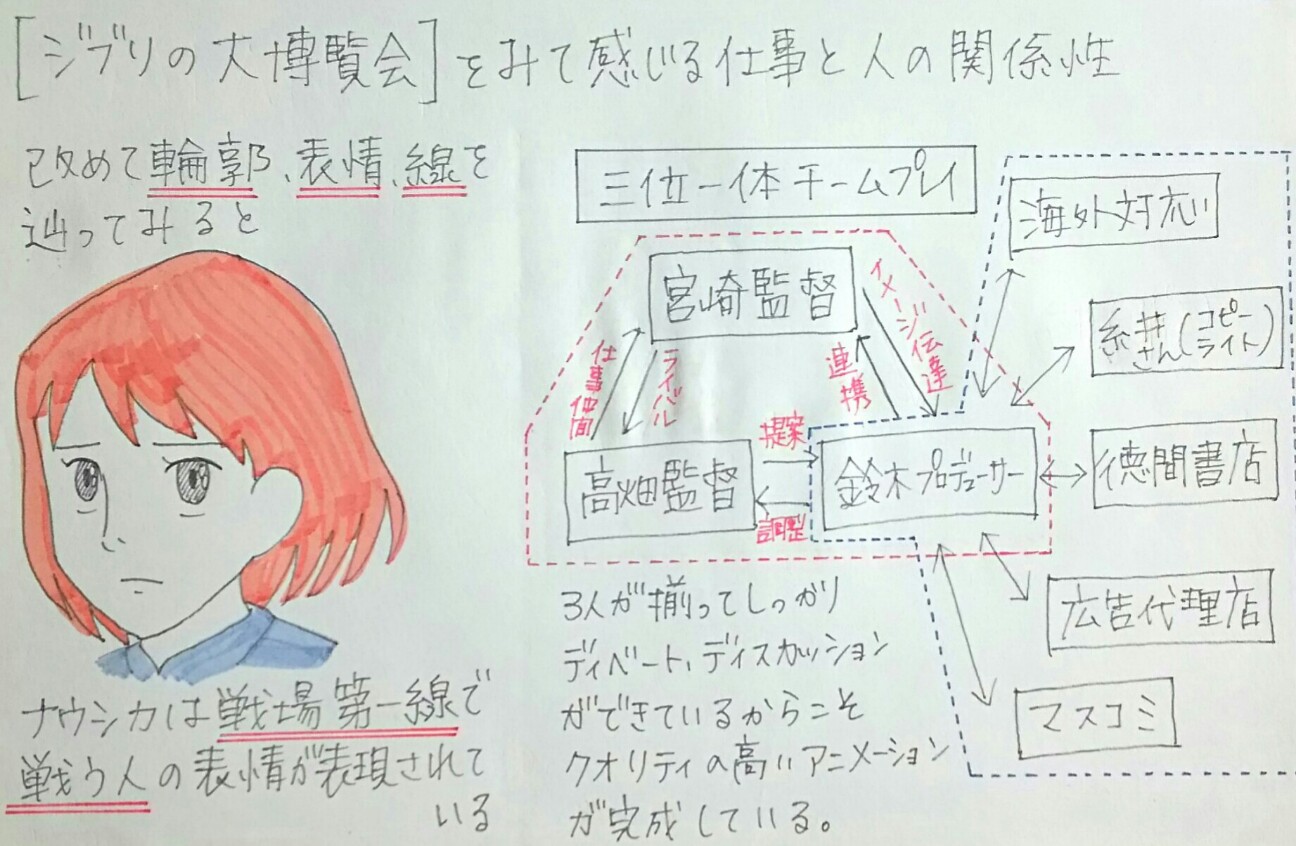 [ジブリの大博覧会]をみて感じる仕事と人の関係性
改めて輪郭、表情、線を
辿ってみると
ナウシカは戦場第一線で
戦う人の表情が表現されて
いる
三位一体チームプレイ
宮崎監督
仕事仲間
ライバル
連携
イメージ伝達
高畑監督
提案
調整
鈴木プロデューサー
3人が揃ってしっかり
ディベート、ディスカッション
ができているからこそ
クオリティの高いアニメーション
が完成している。
海外対応
糸井さん(コピーライト)
徳間書店
広告代理店
マスコミ